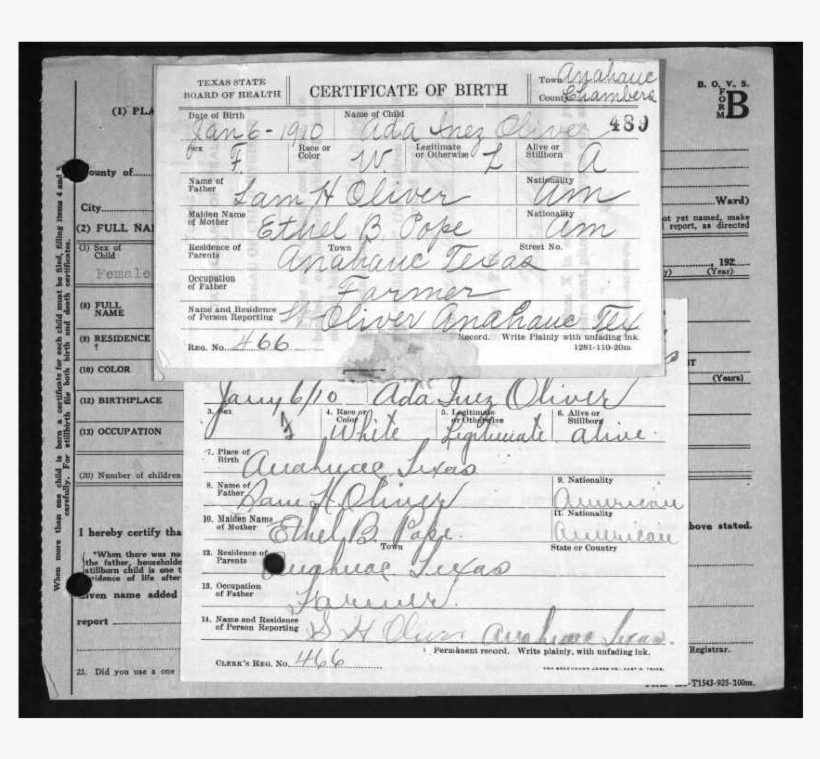 TEXAS STATE
BOARD OF HEALTH
CERTIFICATE OF BIRTH
Town Anahuac
County Chambers
Date of Birth
Name of Child
Jan 6-1910 Ada Inez Oliver 489
Sex F. Race or Color W Legitimate or Otherwise L Alive or Stillborn A
Name of Father Sam H Oliver Nationality Am
Maiden Name of Mother Ethel B Pope Nationality Am
Residence of Parents Town Street No.
Anahauc Texas
Occupation of Father Farmer
Name and Residence of Person Reporting Oliver Anahauc Tex
Record. Write Plainly with unfading ink.
REG. NO. 466
1281-110-20m
Jany 6/10 Ada Inez Oliver
3. Sex f 4. Race or Color White 5. Legitimate or Otherwise Legitimate 6. Alive or Stillborn alive.
7. Place of Birth Anahuac Texas
8. Name of Father Sam H. Oliver 9. Nationality American
10. Maiden Name of Mother Ethel B. Pope. 11. Nationality American
12. Residence of Parents Town State or Country
Anahuac Texas
13. Occupation of Father Farmer.
14. Name and Residence of Person Reporting S H Oliver Anahuac Texas.
Permanent record. Write plainly, with unfading ink.
CLERK'S REG. NO. 466
B. O. V. S.
FORM B
(1) PLA
County of
City
Ward)
(2) FULL NA
ot yet named, make
report, as directed
(3) Sex of Child
Female
, 192
(Year)
(8) FULL NAME
(9) RESIDENCE
(10) COLOR
(Years)
(12) BIRTHPLACE
(13) OCCUPATION
(20) Number of children
I hereby certify tha
bove stated.
*When there was no
the father, householde
stillborn child is one t
vidence of life after
Given name added
report
Registrar.
23. Did you use a one
-T1543-925-100m.
When more than one child is born a certificate for each child must be filed, filling items 4 and 5
carefully. For stillbirth file both birth and death certificates.